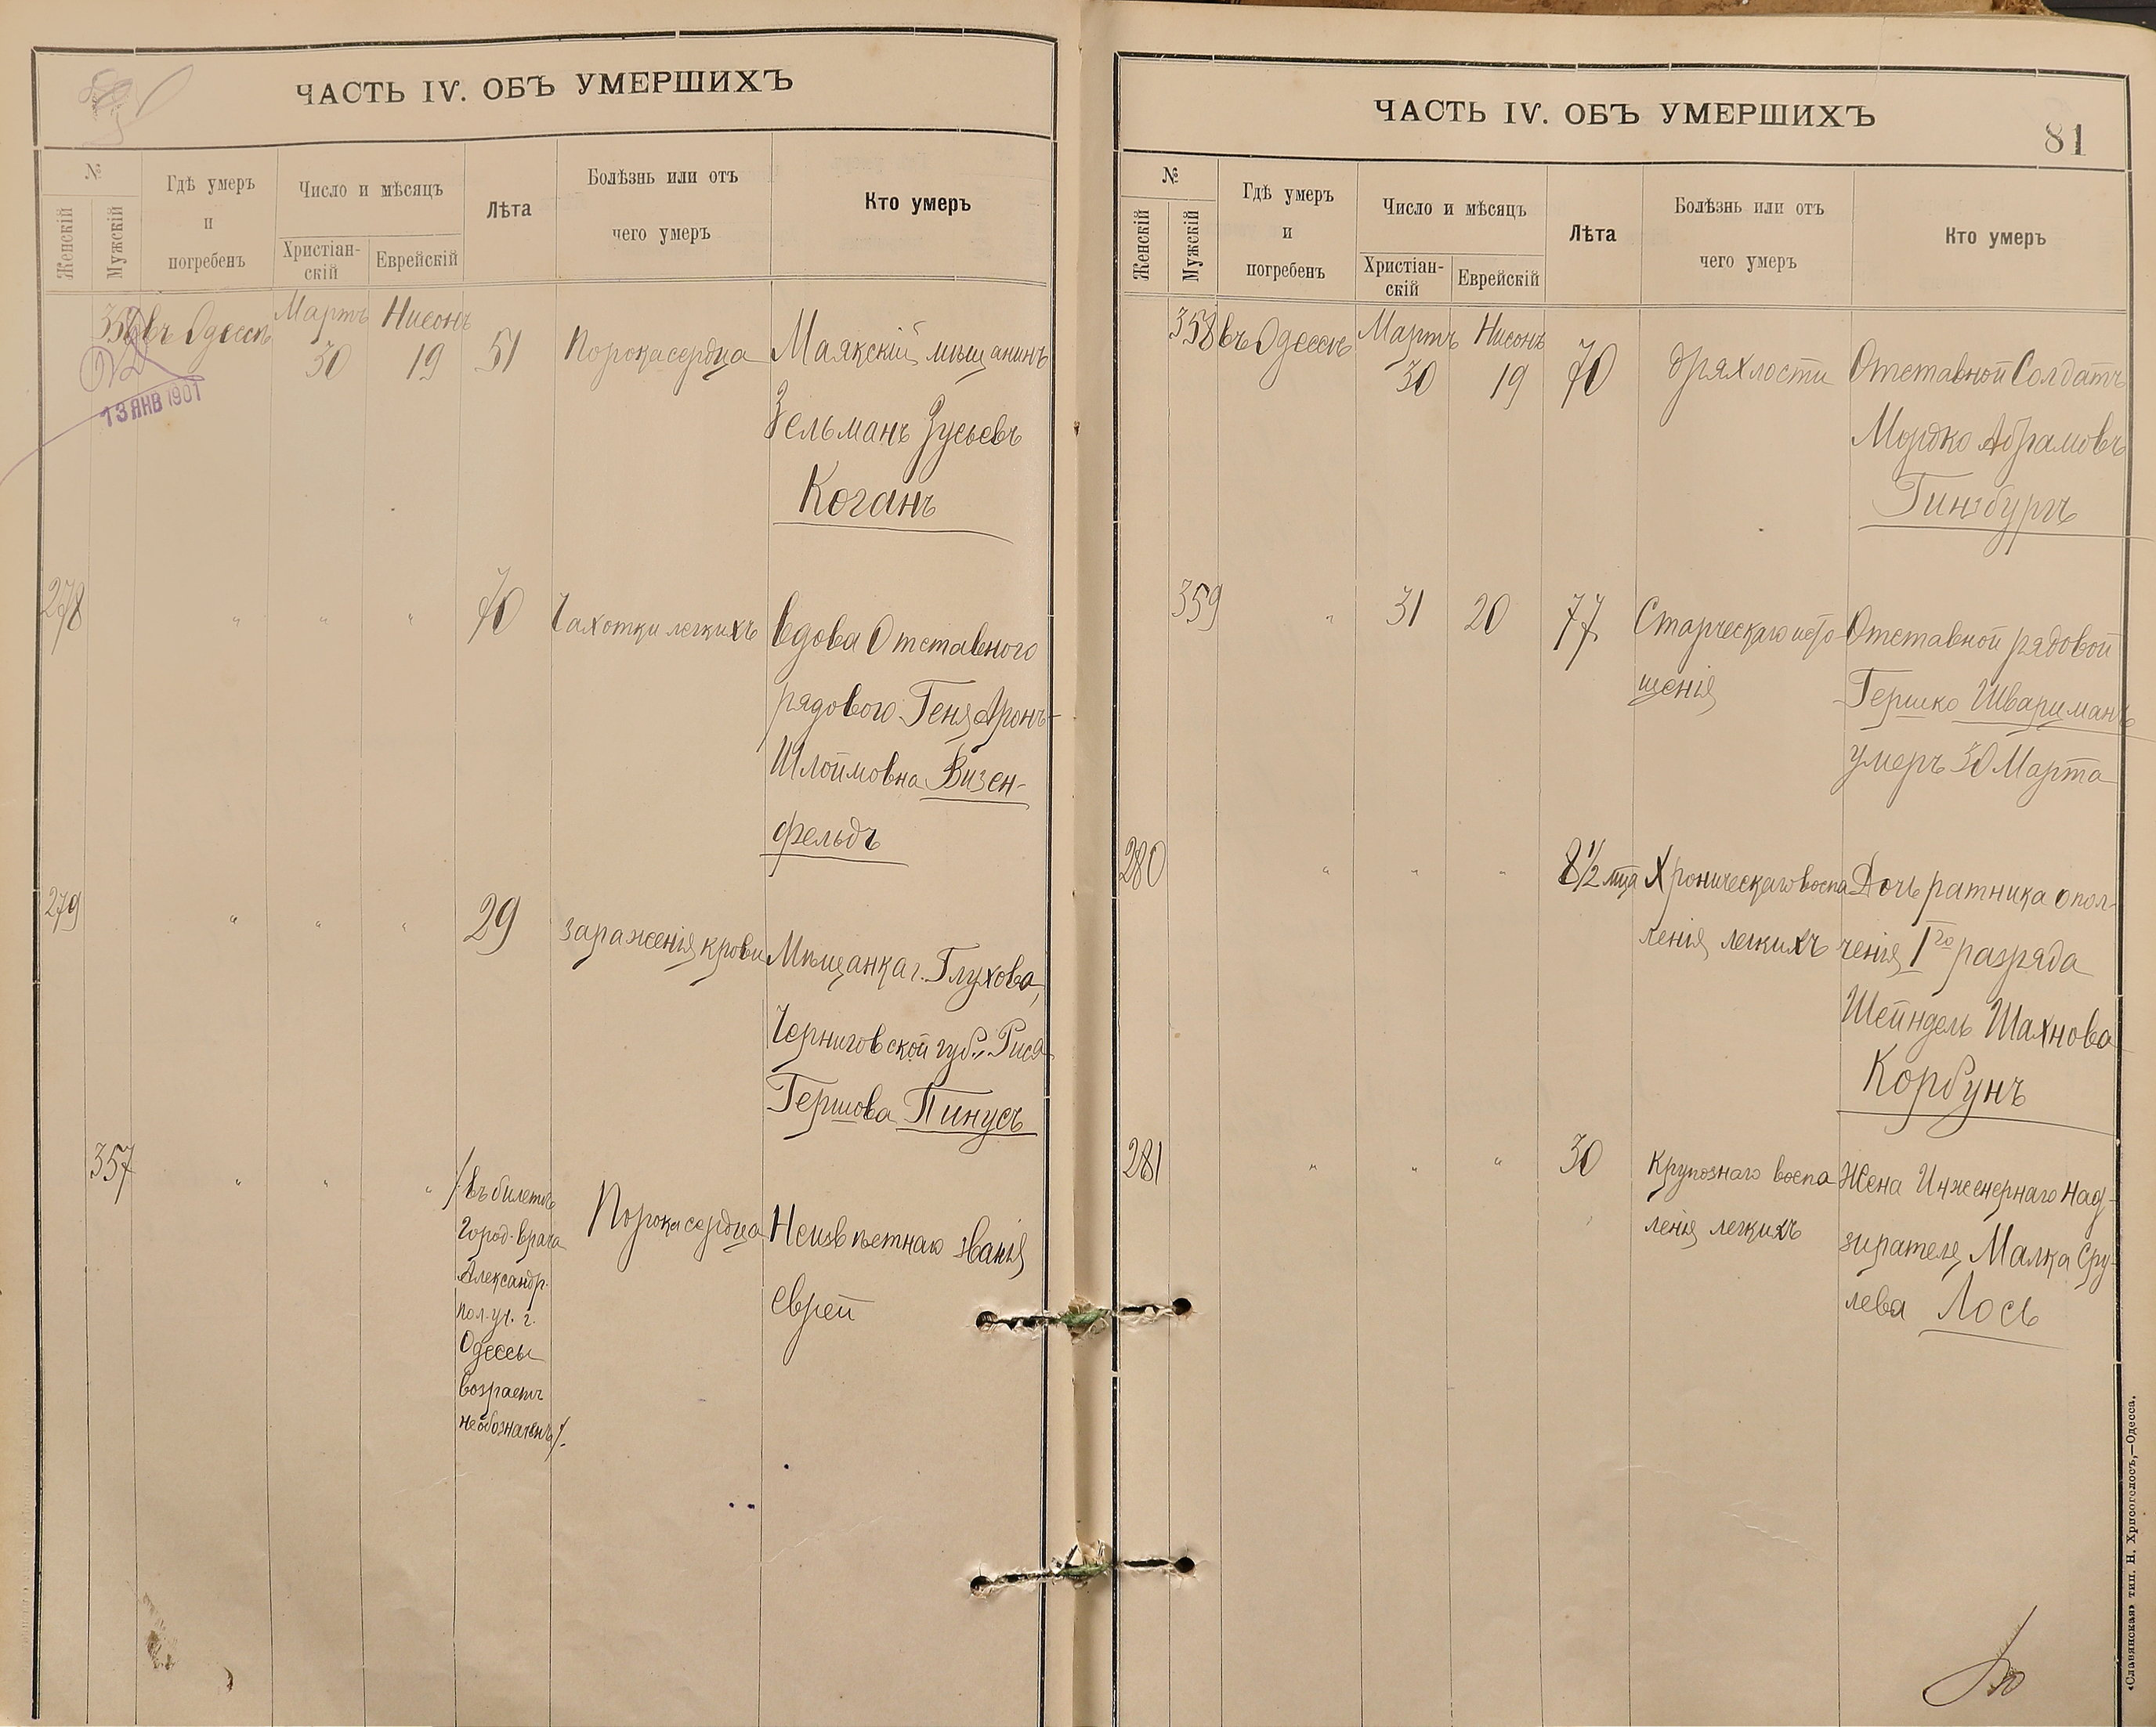 ЧАСТЬ IV. ОБЪ УМЕРШИХЪ
№
Женскій
Мужскій
Гдѣ умеръ
и
погребенъ
Число и мѣсяцъ
Христіан-
скій
Еврейскій
Лѣта
Болѣзнь или отъ
чего умеръ
Кто умеръ
356 въ Одессѣ Мартъ 30 Нисонъ 19 51 Порока сердца Маякскій мѣщанинъ
Зельманъ Зусьевъ
Коганъ
13 ЯНВ 1901
278 " " " 70 Чахотки легкихъ вдова Отставного
рядового Геня Аронъ-
Шлоймовна Визен-
фельдъ
279 " " " 29 заражения крови Мѣщанка г. Глухова,
Черниговской губ. Рися
Гершова Пинусъ
357 " " " /въ билетѣ
город. врача
Александр.
пол. уч. г.
Одессы
возрастъ
не обозначенъ/.
Порока сердца Неизвѣстнаго званія
еврей
ЧАСТЬ IV. ОБЪ УМЕРШИХЪ
81
№
Женскій
Мужскій
Гдѣ умеръ
и
погребенъ
Число и мѣсяцъ
Христіан-
скій
Еврейскій
Лѣта
Болѣзнь или отъ
чего умеръ
Кто умеръ
358 въ Одессѣ Мартъ 30 Нисонъ 19 70 дряхлости Отставной Солдатъ
Мордко Абрамовъ
Гинзбургъ
359 " 31 20 77 Старческаго исто- Отставной рядовой
щенія Гершко Шварцманъ
умеръ 30 Марта
280 " " " 8 1/2 мца Хроническаго воспа Дочь ратника опол-
ленія легкихъ ченія 1го разряда
Шейндель Шахнова
Корбунъ
281 " " " 30 Крупознаго воспа Жена Инженернаго Над-
ленія легкихъ зирателя Малка Сру-
лева Лось
«Славянская» тип. Н. Хрисогелосъ,—Одесса.